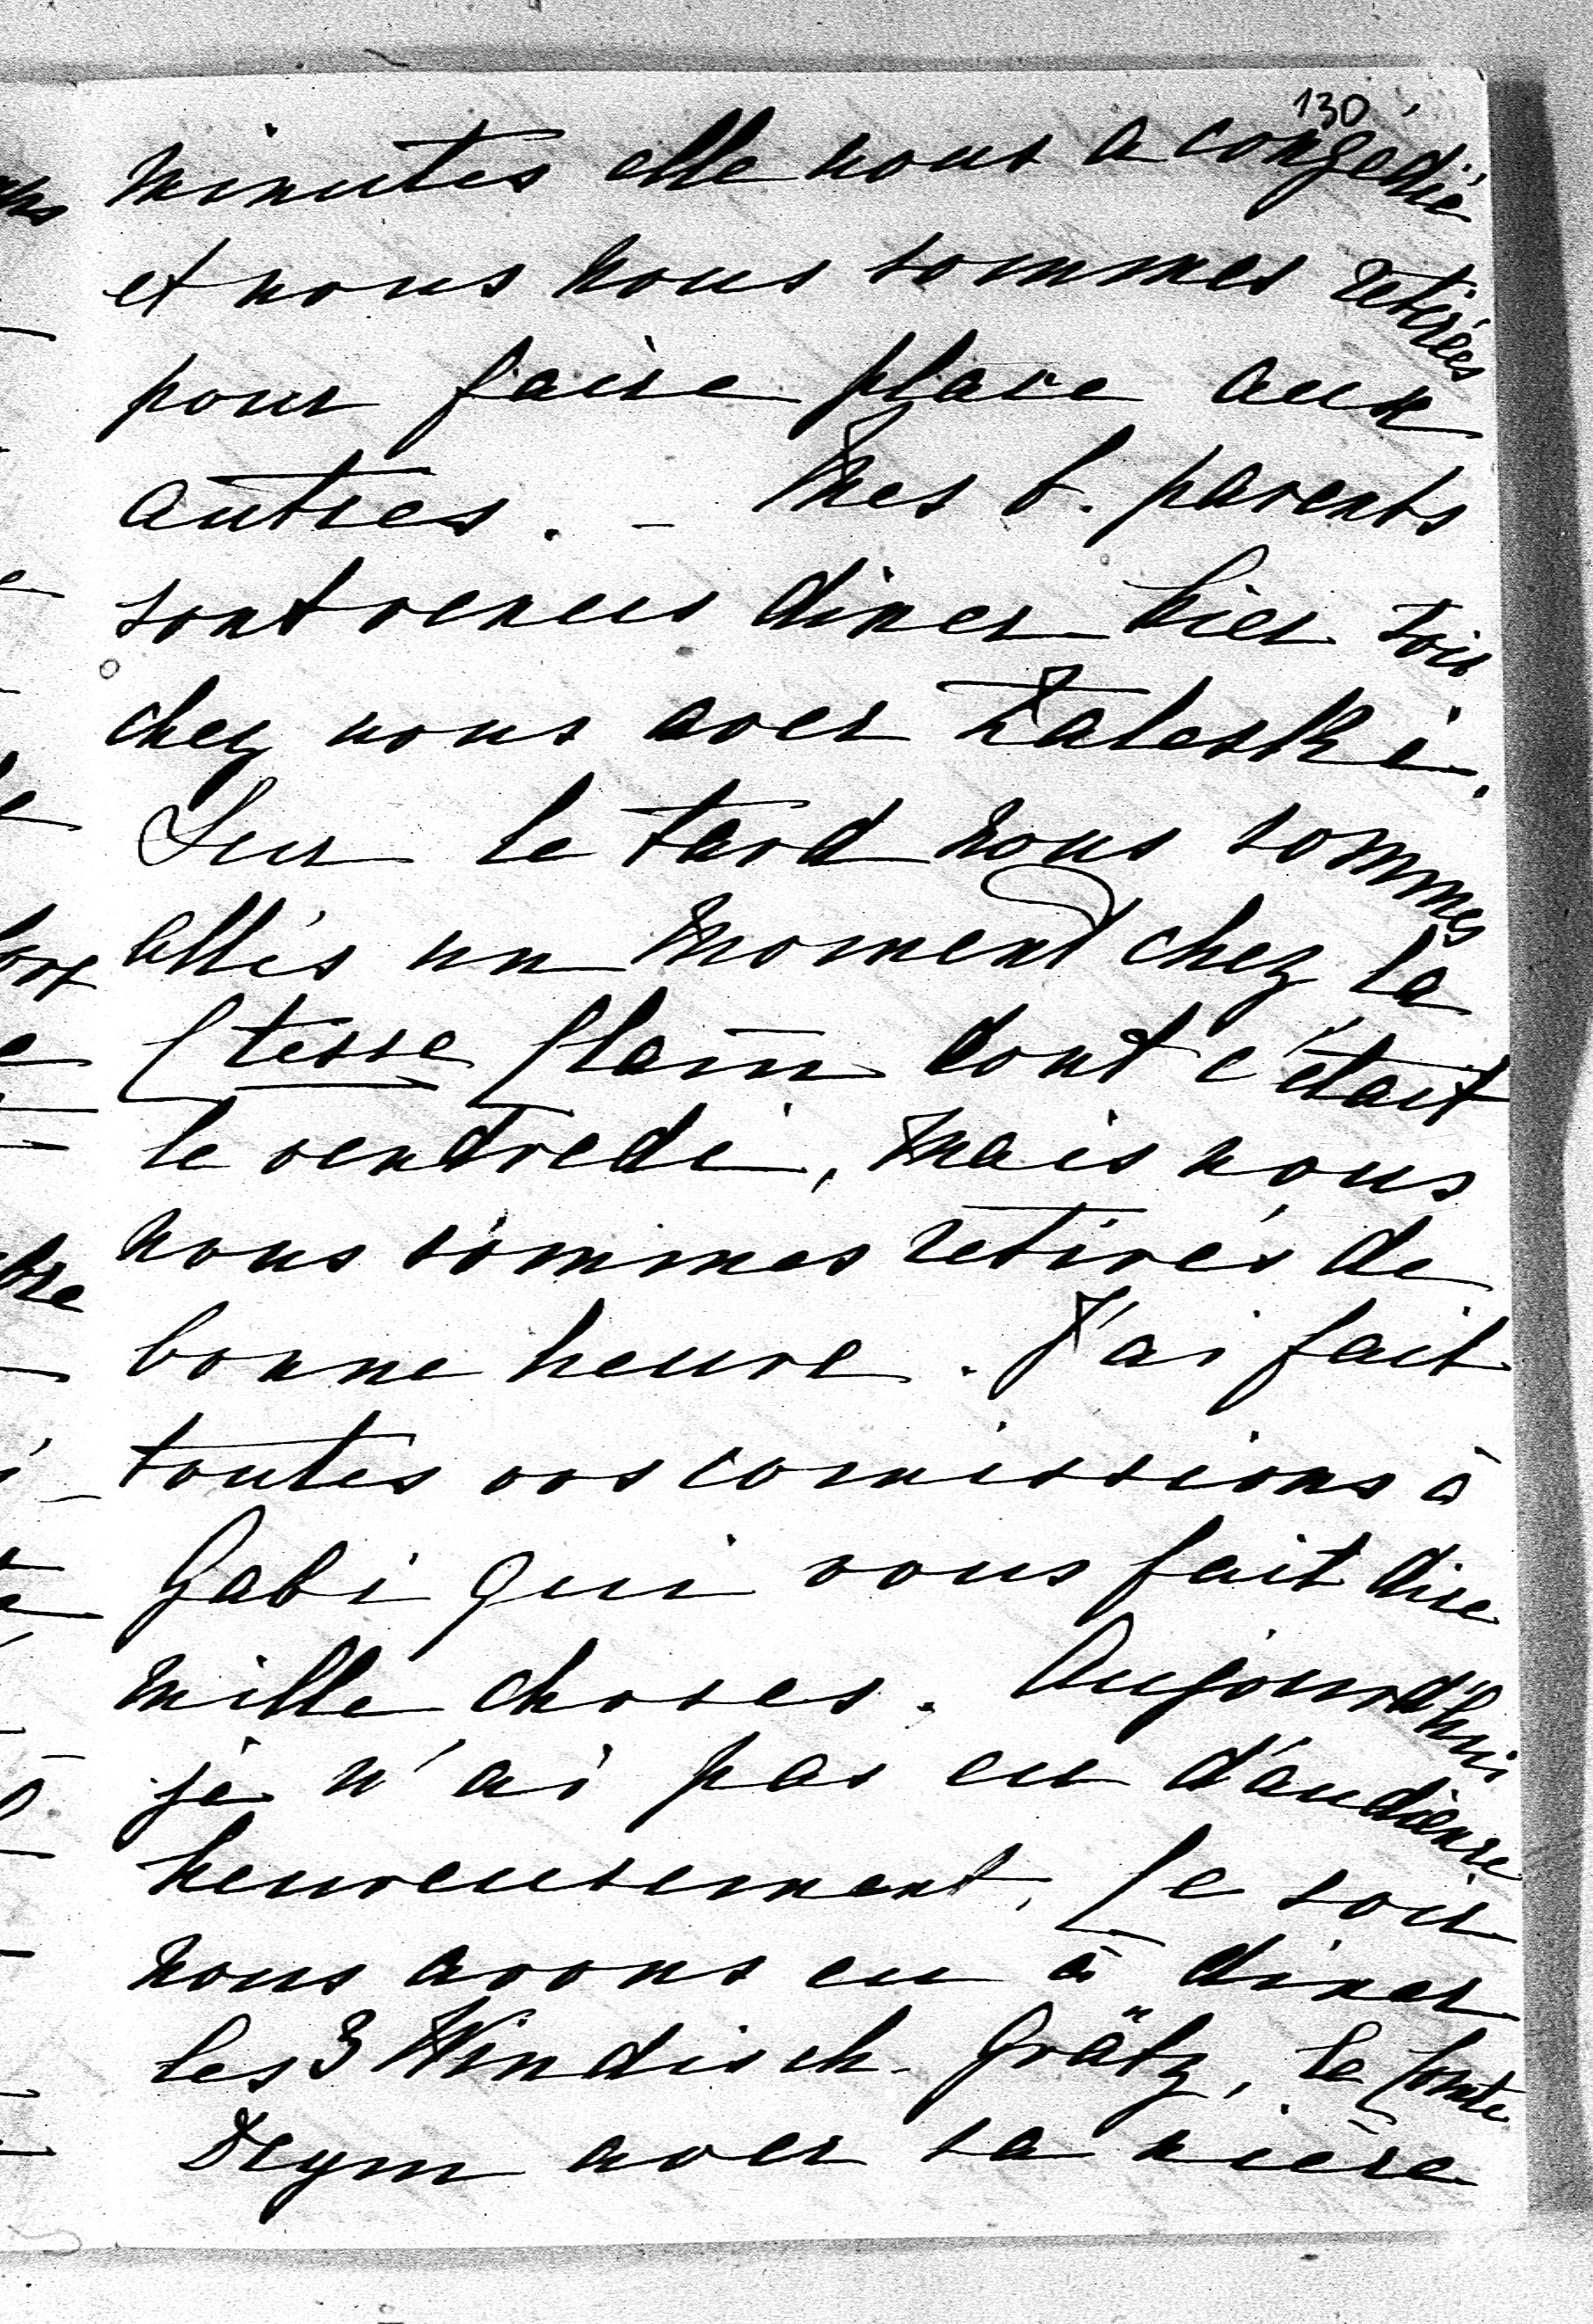 130
minutes elle nous a congédié
et nous nous sommes retirées
pour faire place aux
autres. – Mes b. parents
sont venus diner hier soir
chez nous avec Zaleski.
Sur le tard nous sommes
allés un moment chez la
Ctesse Clam dont c'était
le vendredi, mais nous
nous sommes retirés de
bonne heure. J'ai fait
toutes vos comissions à
Gabi qui vous fait dire
mille choses. Aujourd'hui
je n'ai pas eu d'audience
heureusement, Ce soir
nous avons eu à diner
les 3 Windisch-Grätz, le Comte
Deym avec sa nièce